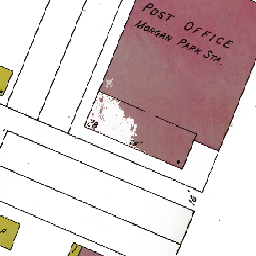 POST OFFICE
MORGAN PARK STA.